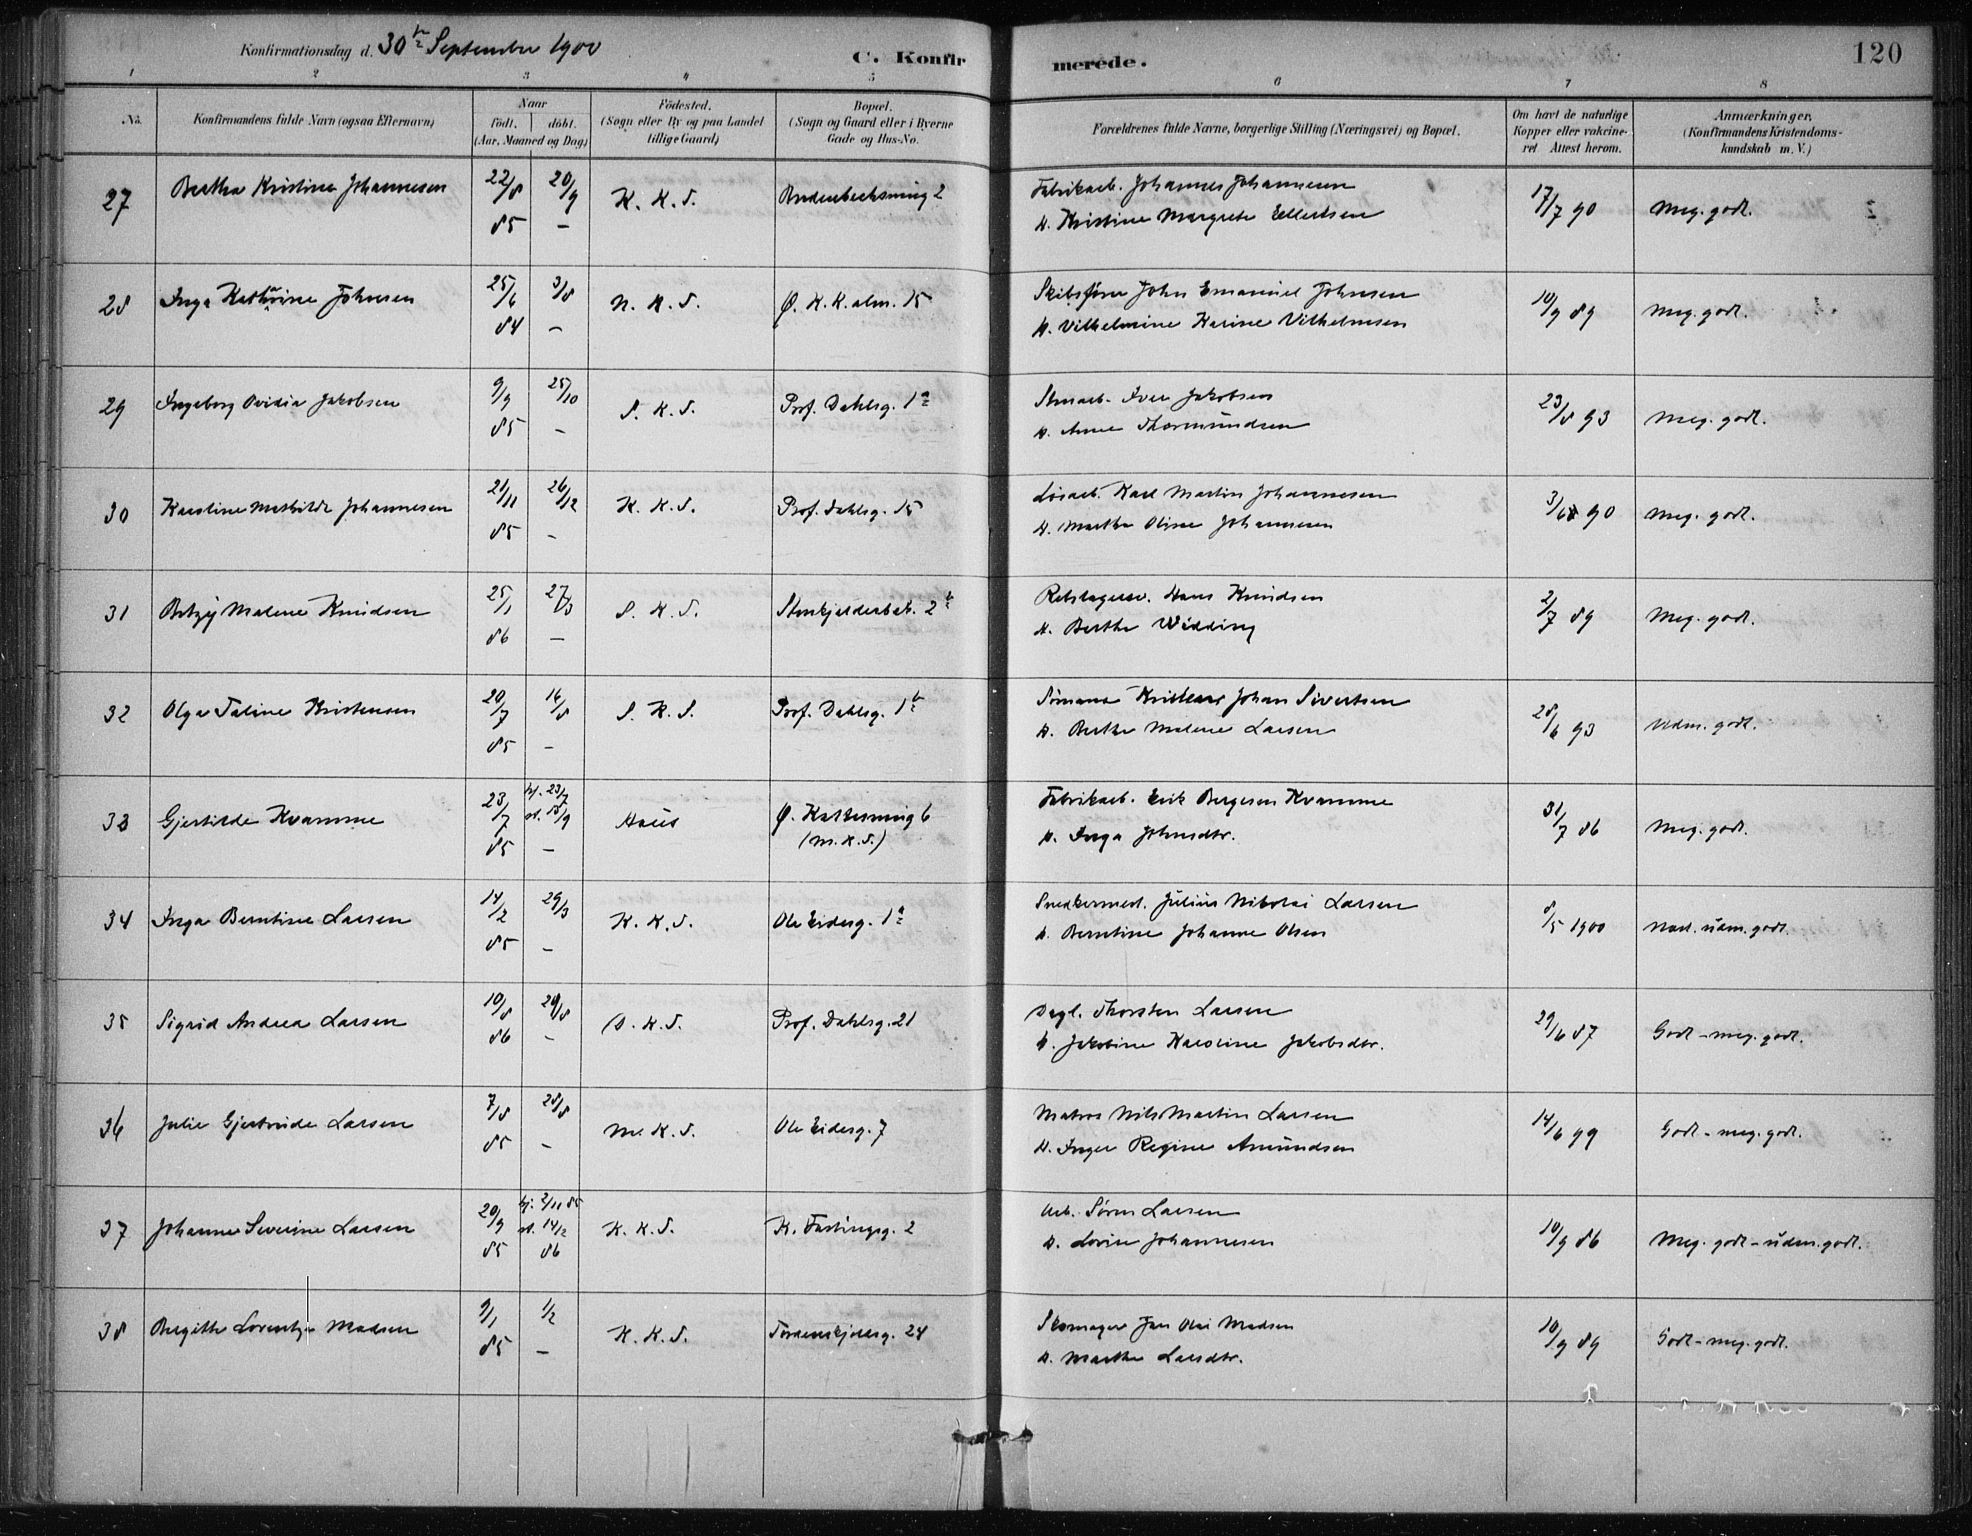 Konfirmationsdag d. 30te September 1900
C. Konfirmerede.
120
1 2 3 4 5 6 7 8
No.
Konfirmandens fulde Navn (ogsaa Efternavn)
Naar
født. døbt.
(Aar, Maaned og Dag)
Fødested.
(Sogn eller By og paa Landet
tillige Gaard)
Bopæl.
(Sogn og Gaard eller i Byerne
Gade og Hus-No.
Forældrenes fulde Navne, borgerlige Stilling (Næringsvei) og Bopæl.
Om havt de naturlige
Kopper eller vakcine-
ret Attest herom.
Anmærkninger,
(Konfirmandens Kristendoms-
kundskab m. V.)
27 Bertha Kristine Johannesen 22/8 85 20/9 – K. K. S. 2 Fabrikarb. Johannes Johannesen 17/7 90 Meg. godt.
H. Kristine Margrete Ellertsen
28 Inga Kathrine Johnsen 25/6 84 3/8 – N. K. S. Ø. K. K. alm. 15 Skibsfører John Emanuel Johnsen 10/9 89 Meg. godt.
H. Vilhelmine Karine Vilhelmsen
29 Ingeborg Ovidia Jakobsen 9/9 85 25/10 – S. K. S. Prof. Dahlsg. 1a Stenarb. Iver Jakobsen 23/8 93 Meg. godt.
H. Anne Thormundsen
30 Karoline Mathilde Johannesen 21/11 85 26/12 – K. K. S. Prof. Dahlsg. 15 Løsarb. Karl Martin Johannesen 3/6 90 Meg. godt.
H. Marthe Oline Johannesen
31 Betzy Malene Knudsen 25/1 86 27/3 – S. K. S. Stenkjelderbak. 2b Rebslagersv. Hans Knudsen 2/7 89 Meg. godt.
H. Berthe Widding
32 Olga Taline Kristensen 20/7 85 16/8 – S. K. S. Prof. Dahlsg. 1b Sømand Kristian Johan Sivertsen 28/6 93 Udm. godt.
H. Berthe Malene Larsen
33 Gjertilde Kvamme 23/7 85 hj. 23/7 st. /9 – Haus Ø. Kalkesmug 6 Fabrikarb. Erik Bergesen Kvamme 31/7 86 Meg. godt.
(M. K. S.) H. Inga Johnsdtr.
34 Inga Berntine Larsen 14/2 85 29/3 – K. K. S. Ole Eidesg. 1a Snedkermest. Julius Nikolai Larsen 8/5 1900 Næst. udm. godt.
H. Berntine Johanne Olsen
35 Sigrid Andrea Larsen 10/8 86 29/8 – D. K. S. Prof. Dahlsg. 21 Dagl. Thorsten Larsen 29/6 87 Godt – meg. godt.
H. Jakobine Karoline Jakobsdtr.
36 Julie Gjertrude Larsen 7/8 85 28/8 – M. K. S. Ole Eidesg. 7 Matros Nils Martin Larsen 14/6 99 Godt – meg. godt.
H. Inger Regine Amundsen
37 Johanne Severine Larsen 20/9 85 hj. 2/11 85 st. 14/2 86 K. K. S. K. Fastingsg. 2 Arb. Søren Larsen 10/9 86 Meg. godt – udm. godt.
H. Lovise Johannesen
38 Birgitte Lorentze Madsen 9/1 85 1/2 – K. K. S. Tordenskjoldsg. 24 Skomager Jan Olai Madsen 10/9 89 Godt – meg. godt.
H. Marthe Larsdtr.